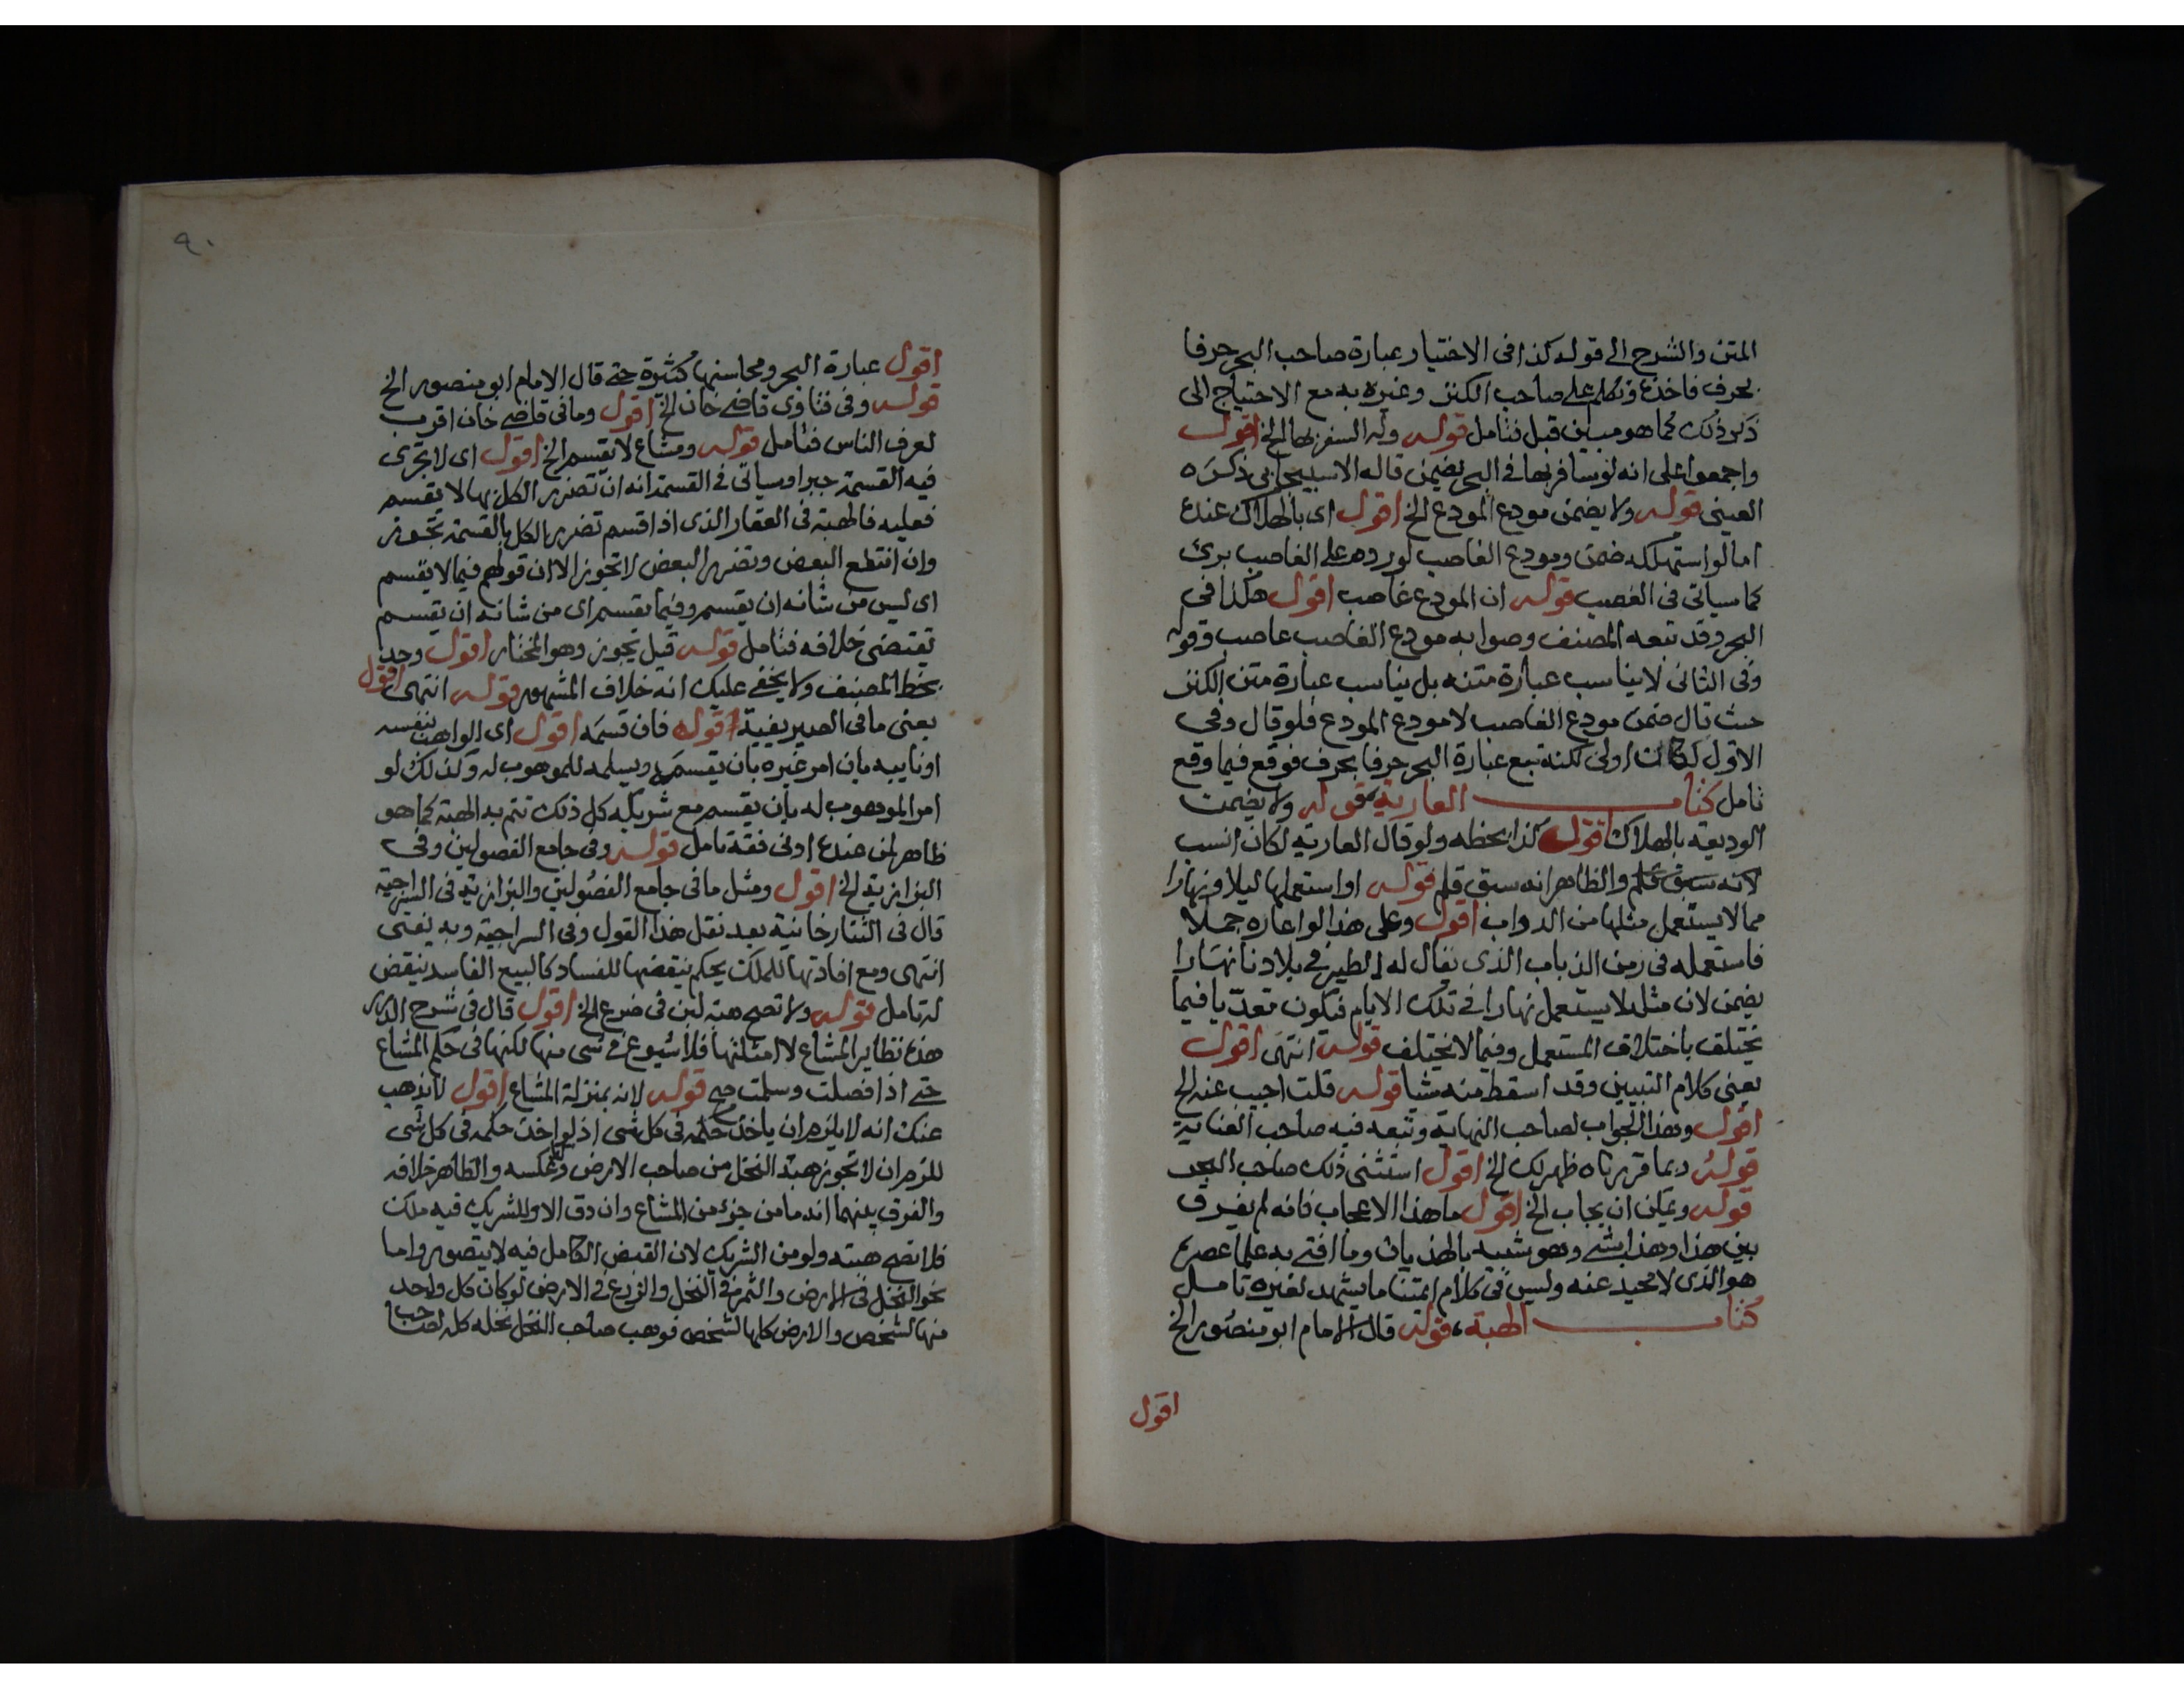 المتن والشرح الى قوله كذا فى الاختيار عبارة صاحب البحر حرفا
بحرف فاخذه وتكلم على صاحب الكنز وغيره به مع الاحتياج الى
ذكر ذلك كما هو مبين قبل فتامل قوله وله السفر بها الخ اقول
واجمعوا على انه لو سافر بها فى البحر يضمن قاله الاسبيجابى ذكره
العينى قوله ولا يضمن مودع المودع الخ اقول اى بالهلاك عنده
اما لو استهلكه ضمن ومودع الغاصب لو رده على الغاصب برئ
كما سياتى فى الغصب قوله ان المودع غاصب اقول هكذا فى
البحر وقد تبعه المصنف وصوابه مودع الغاصب غاصب وقوله
وفى الثانى لا يناسب عبارة متنه بل يناسب عبارة متن الكنز
حيث قال ضمن مودع الغاصب لا مودع المودع فلو قال وفى
الاول لكان اولى لكنه تبع عبارة البحر حرفا بحرف فوقع فيما وقع
تامل كتاب العارية قوله ولا يضمن
الوديعة بالهلاك اقول كذا بخطه ولو قال العارية لكان انسب
لانه سبق قلم والظاهر انه سبق قلم قوله او استعملها ليلا ونهارا
مما لا يستعمل مثلها من الدواب اقول وعلى هذا لو اعاره جملا
فاستعمله فى زمن الذباب الذى يقال له الطير فى بلادنا نهارا
يضمن لان مثله لا يستعمل نهارا فى تلك الايام فيكون تعديا فيما
يختلف باختلاف المستعمل وفيما لا يختلف قوله انتهى اقول
يعنى كلام التبيين وقد اسقط منه شيا قوله قلت اجيب عنه الخ
اقول وهذا الجواب لصاحب النهاية وتبعه فيه صاحب العناية
قوله وبما قررناه ظهر لك الخ اقول استثنى ذلك صاحب البحر
قوله ويمكن ان يجاب الخ اقول ما هذا الاعجاب فانه لم يفرق
بين هذا وهذا بشى وهو شبيه بالهذيان وما افتى به علما عصره
هو الذى لا محيد عنه وليس فى كلام ائمتنا ما يشهد لغيره تامل
كتاب الهبة قوله قال الامام ابو منصور الخ
اقول
٩٠
اقول عبارة البحر ومحاسنها كثيرة حتى قال الامام ابو منصور الخ
قوله وفى فتاوى قاضى خان الخ اقول وما فى قاضى خان اقرب
لعرف الناس فتامل قوله ومشاع لا يقسم الخ اقول اى لا تجرى
فيه القسمة جبرا وسياتى فى القسمة انه ان تضرر الكل بها لا يقسم
فعليه فالهبة فى العقار الذى اذا قسم تضرر الكل بالقسمة تجوز
وان انتفع البعض وتضرر البعض لا تجوز الا ان قولهم فيما لا يقسم
اى ليس من شانه ان يقسم وفيما يقسم اى من شانه ان يقسم
تقتضى خلافه فتامل قوله قيل يجوز وهو المختار اقول وجد
بخط المصنف ولا يخفى عليك انه خلاف المشهور قوله انتهى اقول
يعنى ما فى الصيرفية قوله فان قسمه اقول اى الواهب بنفسه
او نايبه بان امر غيره بان يقسم ويسلمه للموهوب له وكذلك لو
امر الموهوب له بان يقسم مع شريكه كل ذلك تتم به الهبة كما هو
ظاهر لمن عنده ادنى فقه تامل قوله وفى جامع الفصولين وفى
البزازية الخ اقول ومثل ما فى جامع الفصولين والبزازية فى السراجية
قال فى التتارخانية بعد نقل هذا القول وفى السراجية وبه يفتى
انتهى ومع افادتها للملك يحكم بنقضها للفساد كالبيع الفاسد ينقض
له تامل قوله ولا تصح هبة لبن فى ضرع الخ اقول قال فى شرح الدرر
هذه نظاير المشاع لا امثلتها فلا شيوع فى شى منها لكنها فى حكم المشاع
حتى اذا فصلت وسلمت صح قوله لانه بمنزلة المشاع اقول لا يذهب
عنك انه لا يلزم ان ياخذ حكمه فى كل شى اذ لو اخذ حكمه فى كل شى
للزم ان لا تجوز هبة النخل من صاحب الارض وعكسه والظاهر خلافه
والفرق بينهما انه ما من جزء من المشاع وان دق الا وللشريك فيه ملك
فلا تصح هبته ولو من الشريك لان القبض الكامل فيه لا يتصور واما
نحو النخل فى الارض والثمر فى النخل والزرع فى الارض لو كان كل واحد
منها لشخص والارض كلها لشخص فوهب صاحب النخل نخله كله لصاحب